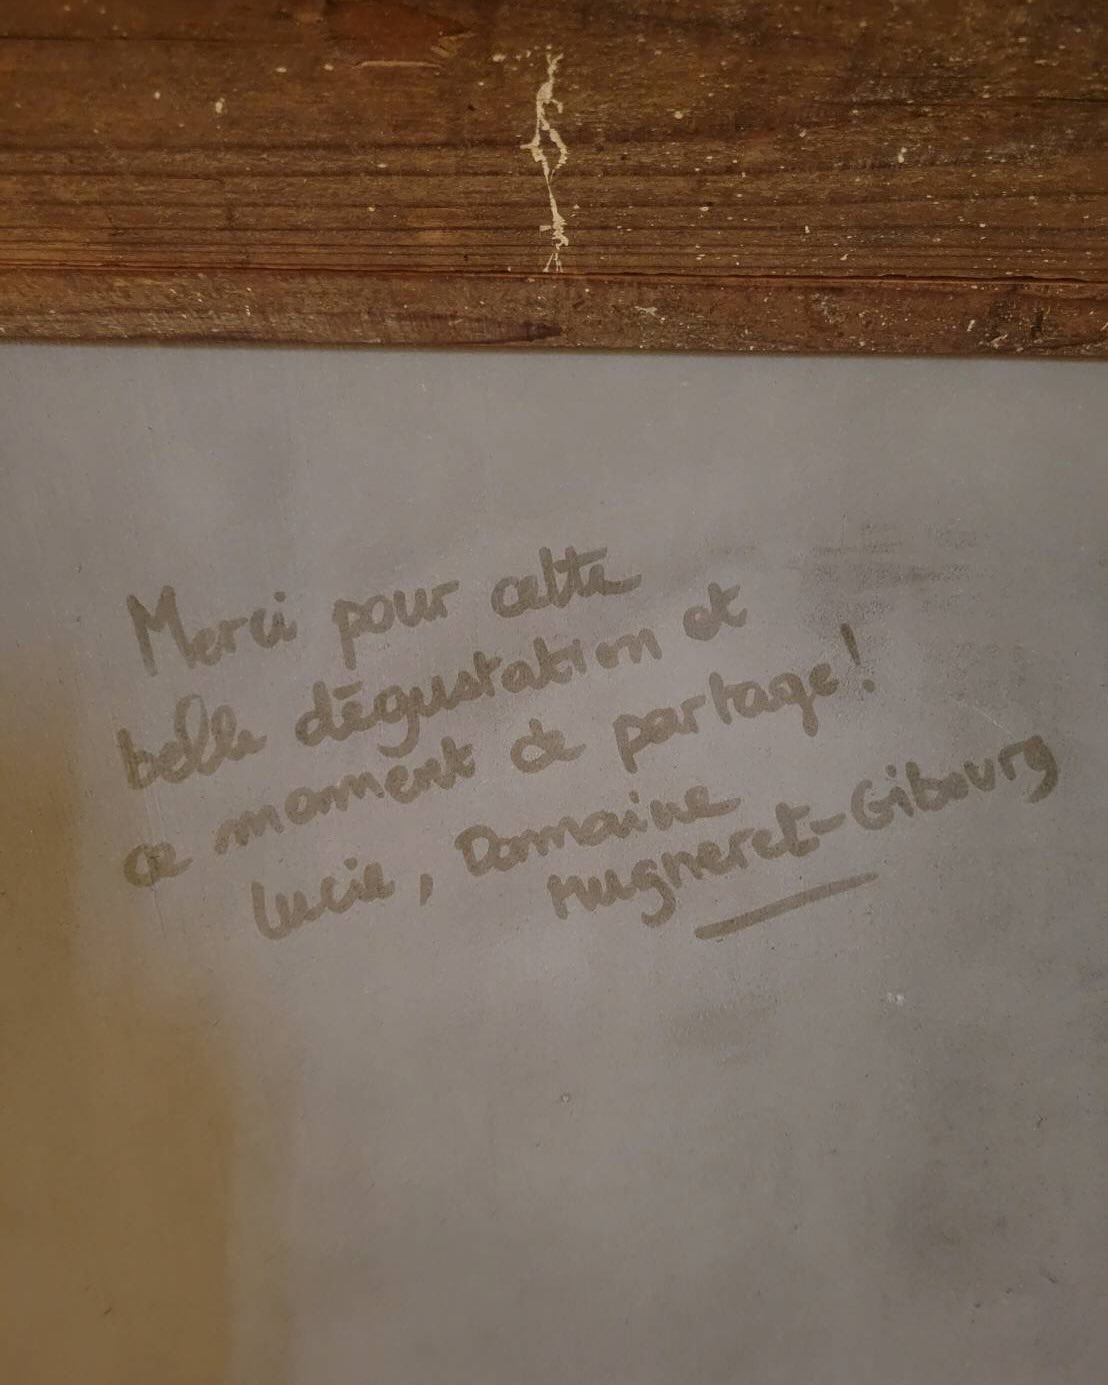 Merci pour cette
belle dégustation et
ce moment de partage!
Lucie, Domaine
Mugneret-Gibourg